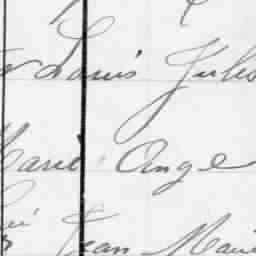 Louis Jules
Marie Ange
Jean Marie